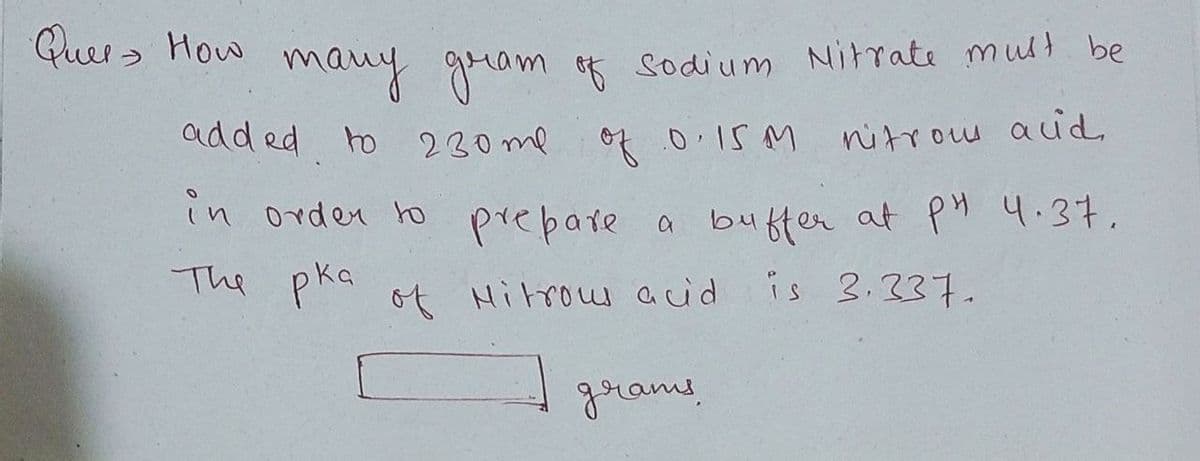 Ques → How many gram of Sodium Nitrate must be
added to 230 ml of 0.15 M nitrous acid,
in order to prepare a buffer at pH 4.37.
The pka of Nitrous acid is 3.337.
grams.